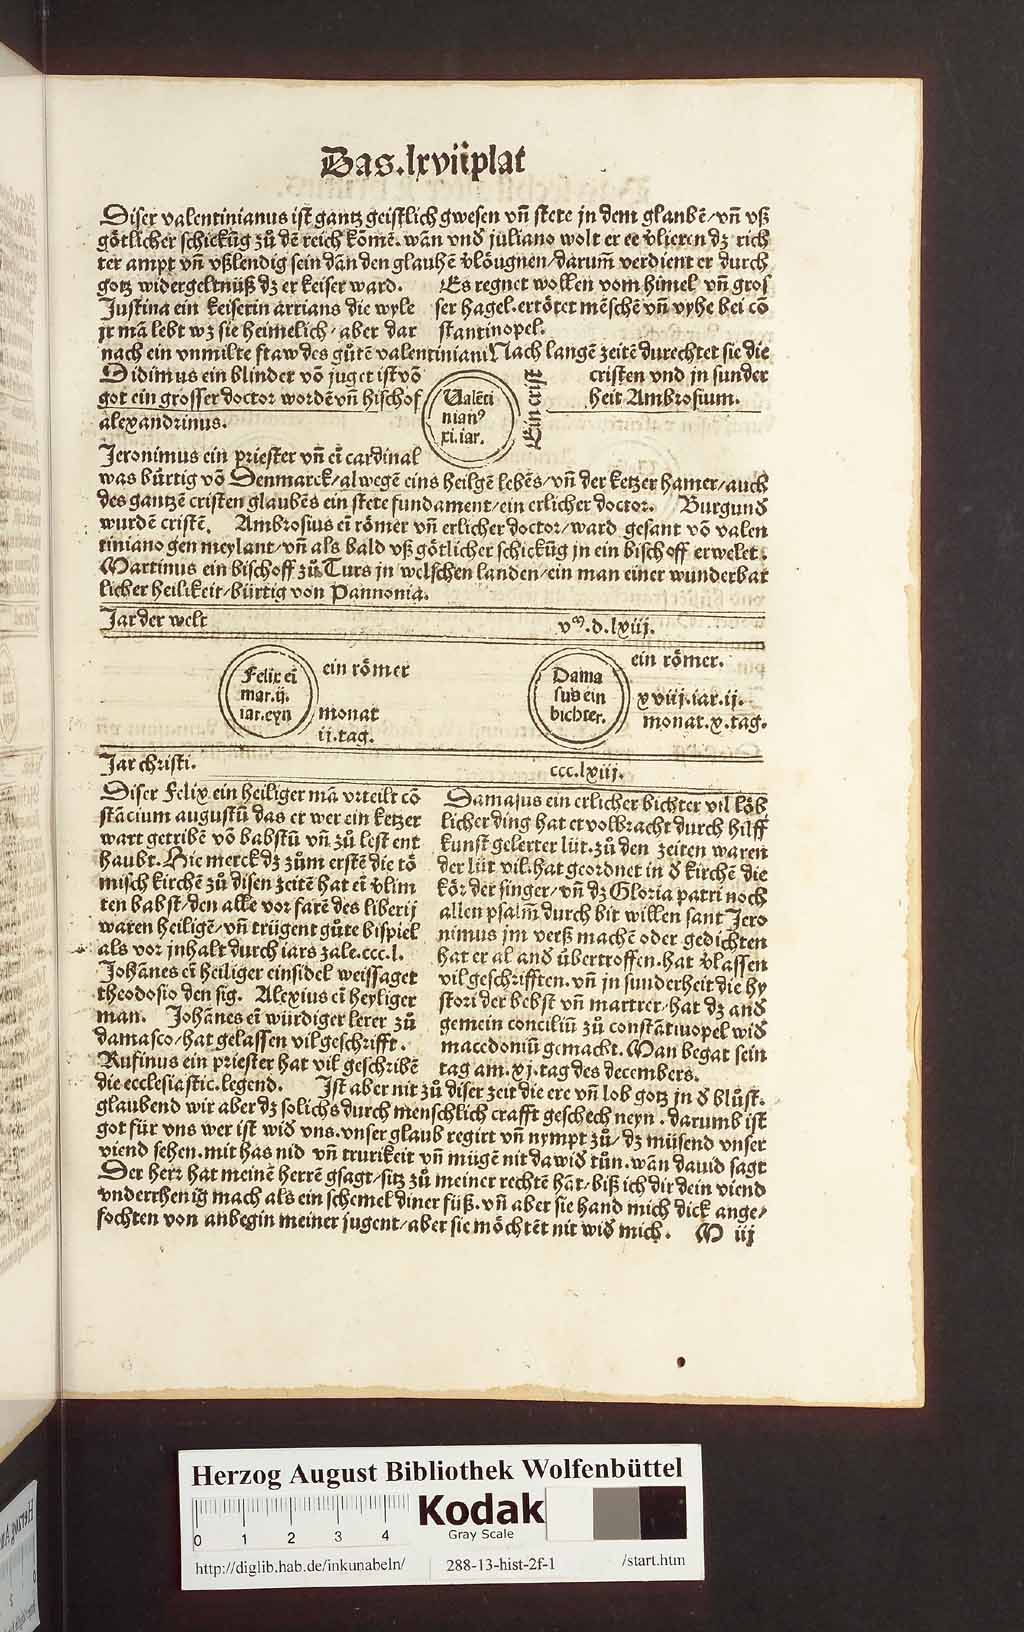 Das.lxvii plat
Diser valentinianus ist gantz geistlich gwesen vñ stete jn dem glaubẽ/vñ vß
götlicher schickũg zů dẽ reich kõmẽ. wãn vnd juliano wolt er ee vlieren dz rich
ter ampt vñ vßlendig sein dãn den glaubẽ vlöugnen/darum̃ verdient er durch
gotz widergeltnüß dz er keiser ward.
Es regnet wollen vom himel vñ gros
ser hagel.ertötet mẽschẽ vñ vyhe bei cõ
stantinopel.
Justina ein keiserin arrians die wyle
jr mã lebt wz sie heimelich/aber dar
nach ein vnmilte fraw des gůtẽ valentiniani
Nach langẽ zeitẽ durechtet sie die
cristen vnd jn sunder
heit Ambrosium.
Didimus ein blinder võ juget ist võ
got ein grosser doctor wordẽ vñ bischof
alexandrinus.
Valẽti
nianꝰ
xi.iar.
Ein crist
Jeronimus ein priester vñ eĩ cardinal
was bürtig võ Denmarck/alwegẽ eins heilgẽ lebẽs/vñ der ketzer hamer/auch
des gantzẽ cristen glaubẽs ein stete fundament/ein erlicher doctor. Burgund
wurdẽ cristẽ. Ambrosius eĩ römer vñ erlicher doctor/ward gesant võ valen
tiniano gen meylant/vñ als bald vß götlicher schickũg jn ein bischoff erwelet.
Martinus ein bischoff zů Turs jn welschen landen/ein man einer wunderbar
licher heilikeit/bürtig von Pannonia.
Jar der welt
vᵐ.d.lxiij.
Felix eĩ
mar.ij.
iar.eyn
ein römer
monat
ij.tag.
Dama
sus ein
bichter.
ein römer.
xviij.iar.ij.
monat.x.tag.
Jar christi.
ccc.lxiij.
Diser Felix ein heiliger mã vrteilt cõ
stãcium augustũ das er wer ein ketzer
wart getribẽ võ babstũ vñ zů lest ent
haubt. Hie merck dz zům erstẽ die rö
misch kirchẽ zů disen zeitẽ hat eĩ vlim
ten babst/den alle vor farẽ des liberij
waren heiligẽ/vñ trügent gůte bispiel
als vor jnhalt durch iars zale.ccc.l.
Johãnes eĩ heiliger einsidel weissaget
theodosio den sig. Alexius eĩ heyliger
man. Johãnes eĩ würdiger lerer zů
damasco/hat gelassen vil geschrifft.
Rufinus ein priester hat vil geschribẽ
die ecclesiastic.legend.
Damasus ein erlicher bichter vil löb
licher ding hat er volbracht durch hilff
kunst gelerter lüt.zů den zeiten waren
der lüt vil.hat geordnet in d kirchẽ die
kör der singer/vñ dz Gloria patri noch
allen psalm̃ durch bit willen sant Jero
nimus jm verß machẽ oder gedichten
hat er al and übertroffen.hat vlassen
vil geschrifften.vñ jn sunderheit die hy
stori der bebst vñ martrer/hat dz and
gemein conciliũ zů constãtinopel wid
macedoniũ gemacht. Man begat sein
tag am.xj.tag des decembers.
Ist aber nit zů diser zeit die ere vñ lob gotz jn d blůst.
glaubend wir aber dz solichs durch menschlich crafft geschech neyn. darumb ist
got für vns wer ist wid vns.vnser glaub regirt vñ nympt zů/dz müsend vnser
viend sehen.mit has nid vñ trurikeit vñ mügẽ nit dawid tůn.wãn dauid sagt
Der herr hat meinẽ herrẽ gsagt/sitz zů meiner rechtẽ hãt/biß ich dir dein viend
vnderthenig mach als ein schemel diner füß.vñ aber sie hand mich dick ange/
fochten von anbegin meiner jugent/aber sie möchtẽt nit wid mich. M iij
Herzog August Bibliothek Wolfenbüttel
0 1 2 3 4
Kodak
Gray Scale
http://diglib.hab.de/inkunabeln/ 288-13-hist-2f-1 /start.htm